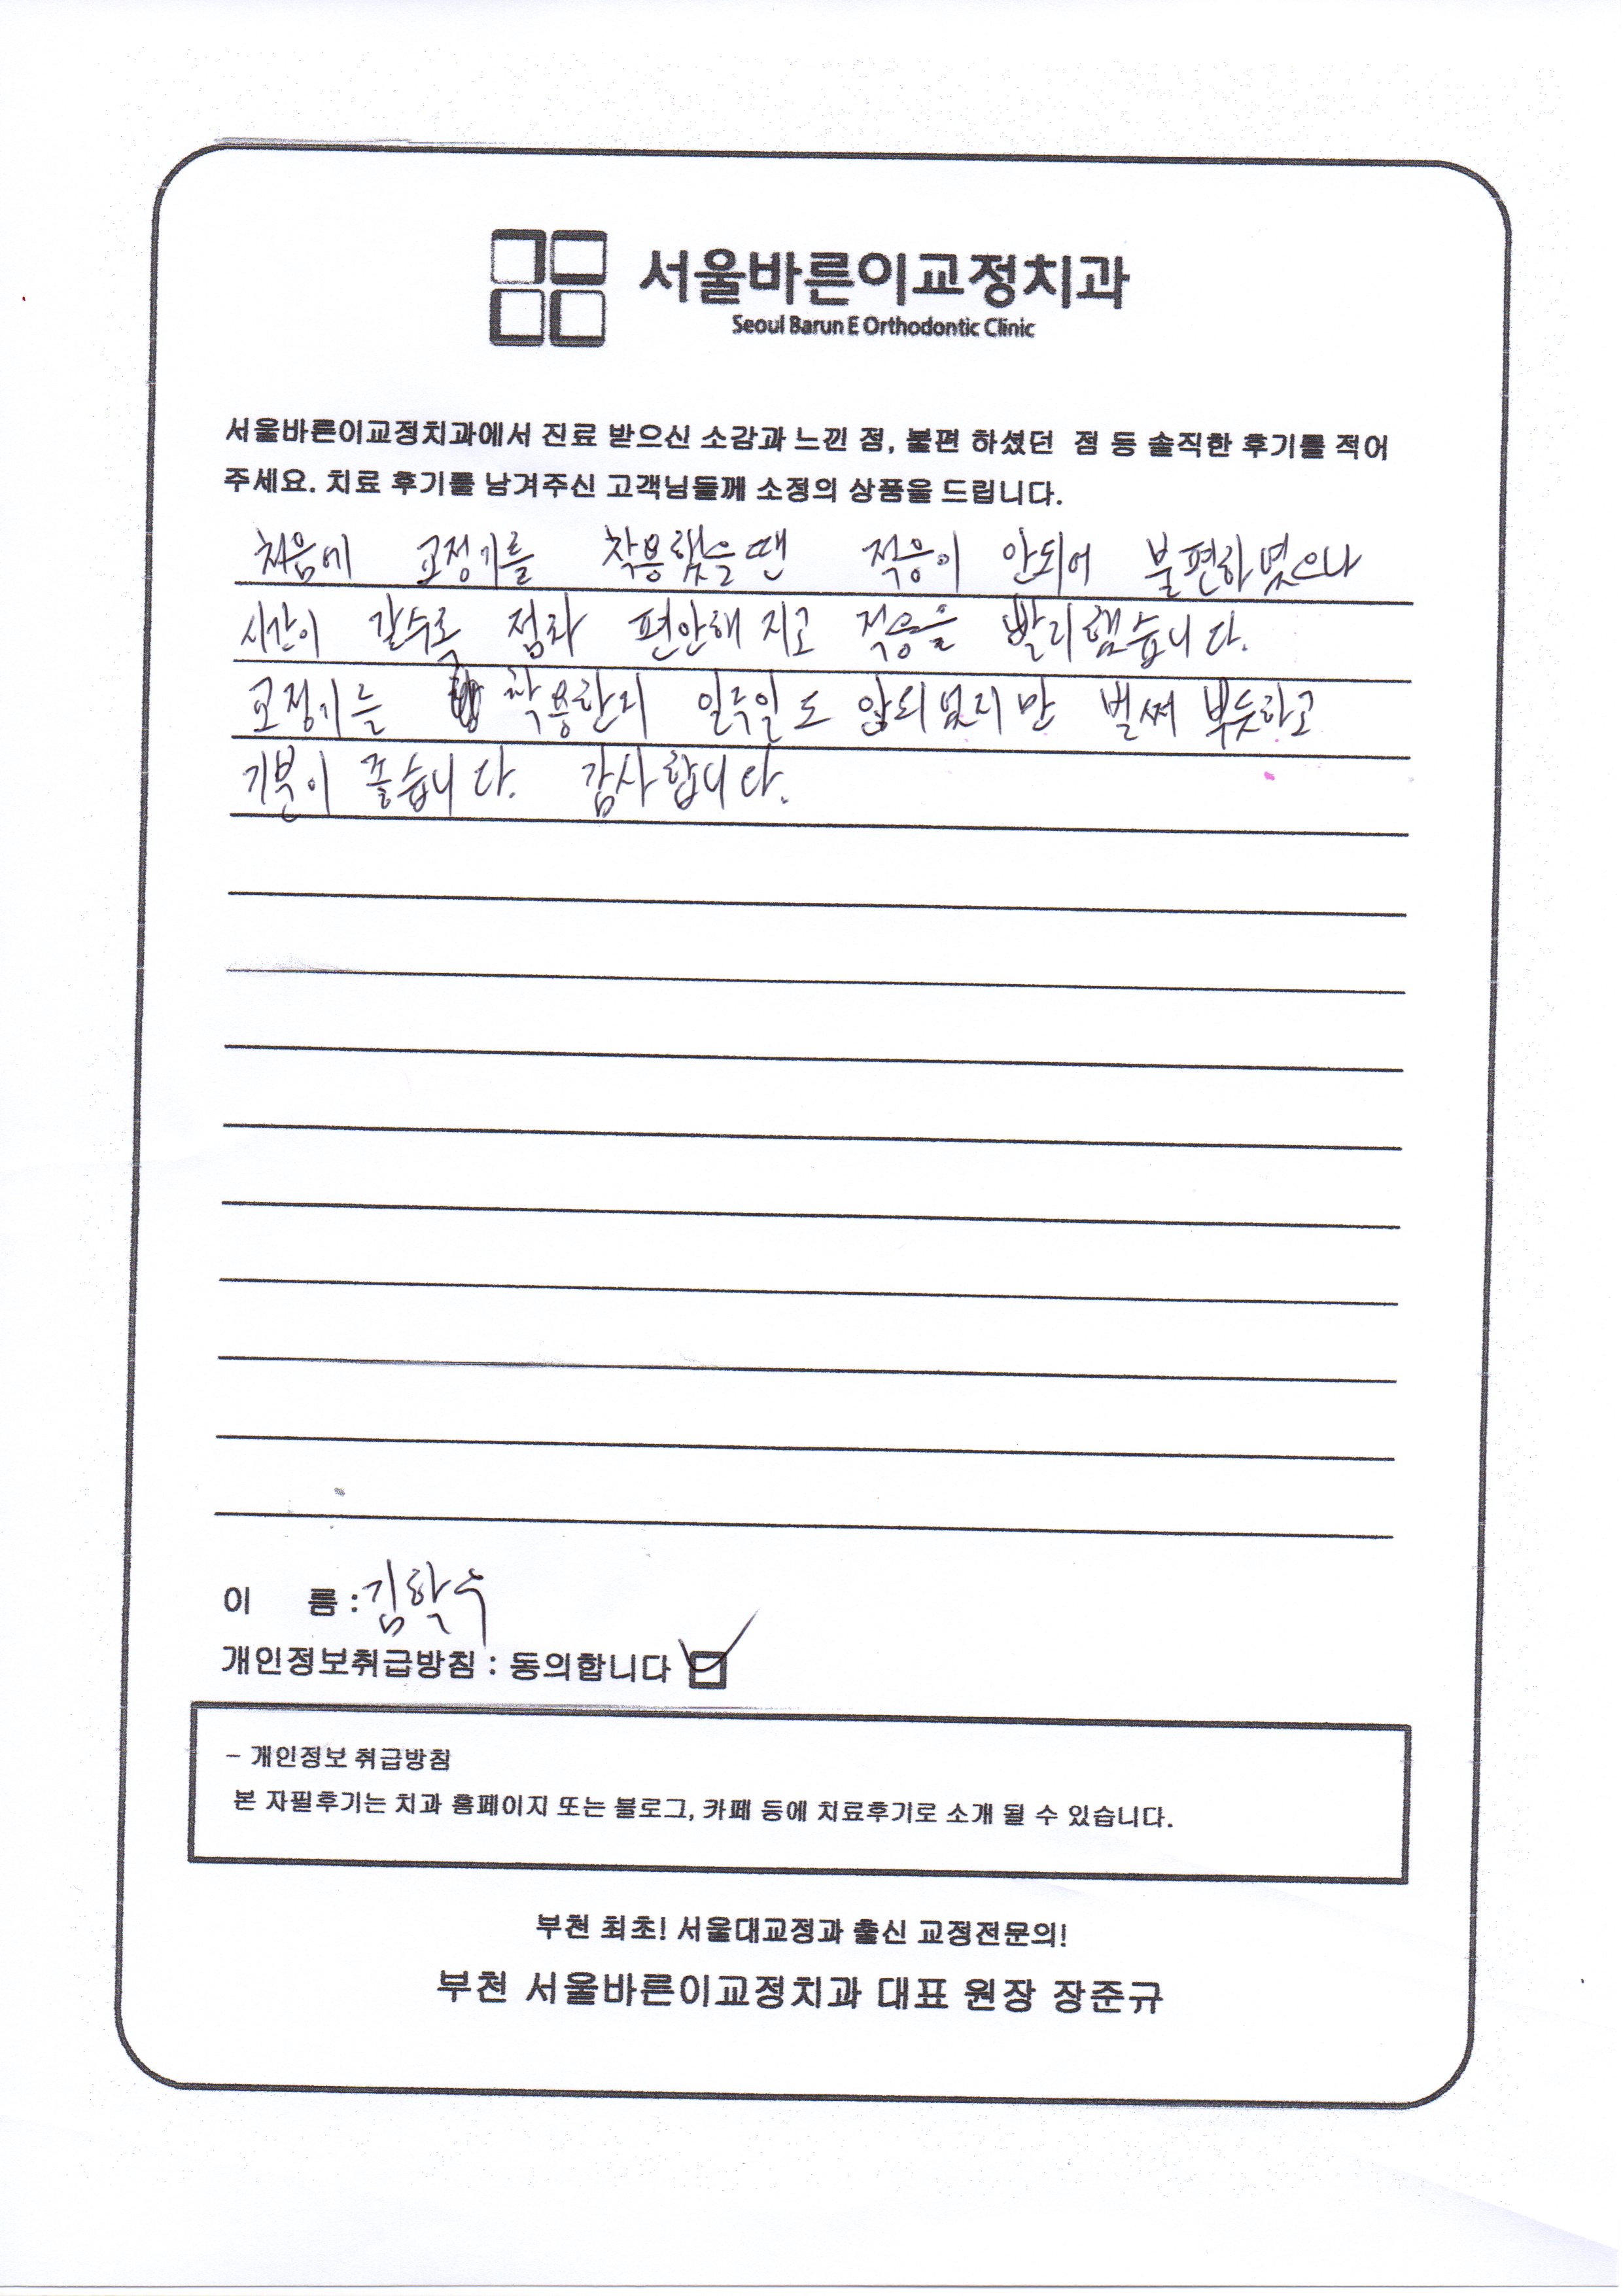 서울바른이교정치과
Seoul Barun E Orthodontic Clinic
서울바른이교정치과에서 진료 받으신 소감과 느낀 점, 불편 하셨던 점 등 솔직한 후기를 적어
주세요. 치료 후기를 남겨주신 고객님들께 소정의 상품을 드립니다.
처음에 교정기를 착용했을땐 적응이 안되어 불편하였으나
시간이 갈수록 점차 편안해 지고 적응을 빨리했습니다.
교정기를 착용한지 일주일도 안되었지만 벌써 뿌듯하고
기분이 좋습니다. 감사합니다.
이 름 : 김학수
개인정보취급방침 : 동의합니다
- 개인정보 취급방침
본 자필후기는 치과 홈페이지 또는 블로그, 카페 등에 치료후기로 소개 될 수 있습니다.
부천 최초! 서울대교정과 출신 교정전문의!
부천 서울바른이교정치과 대표 원장 장준규